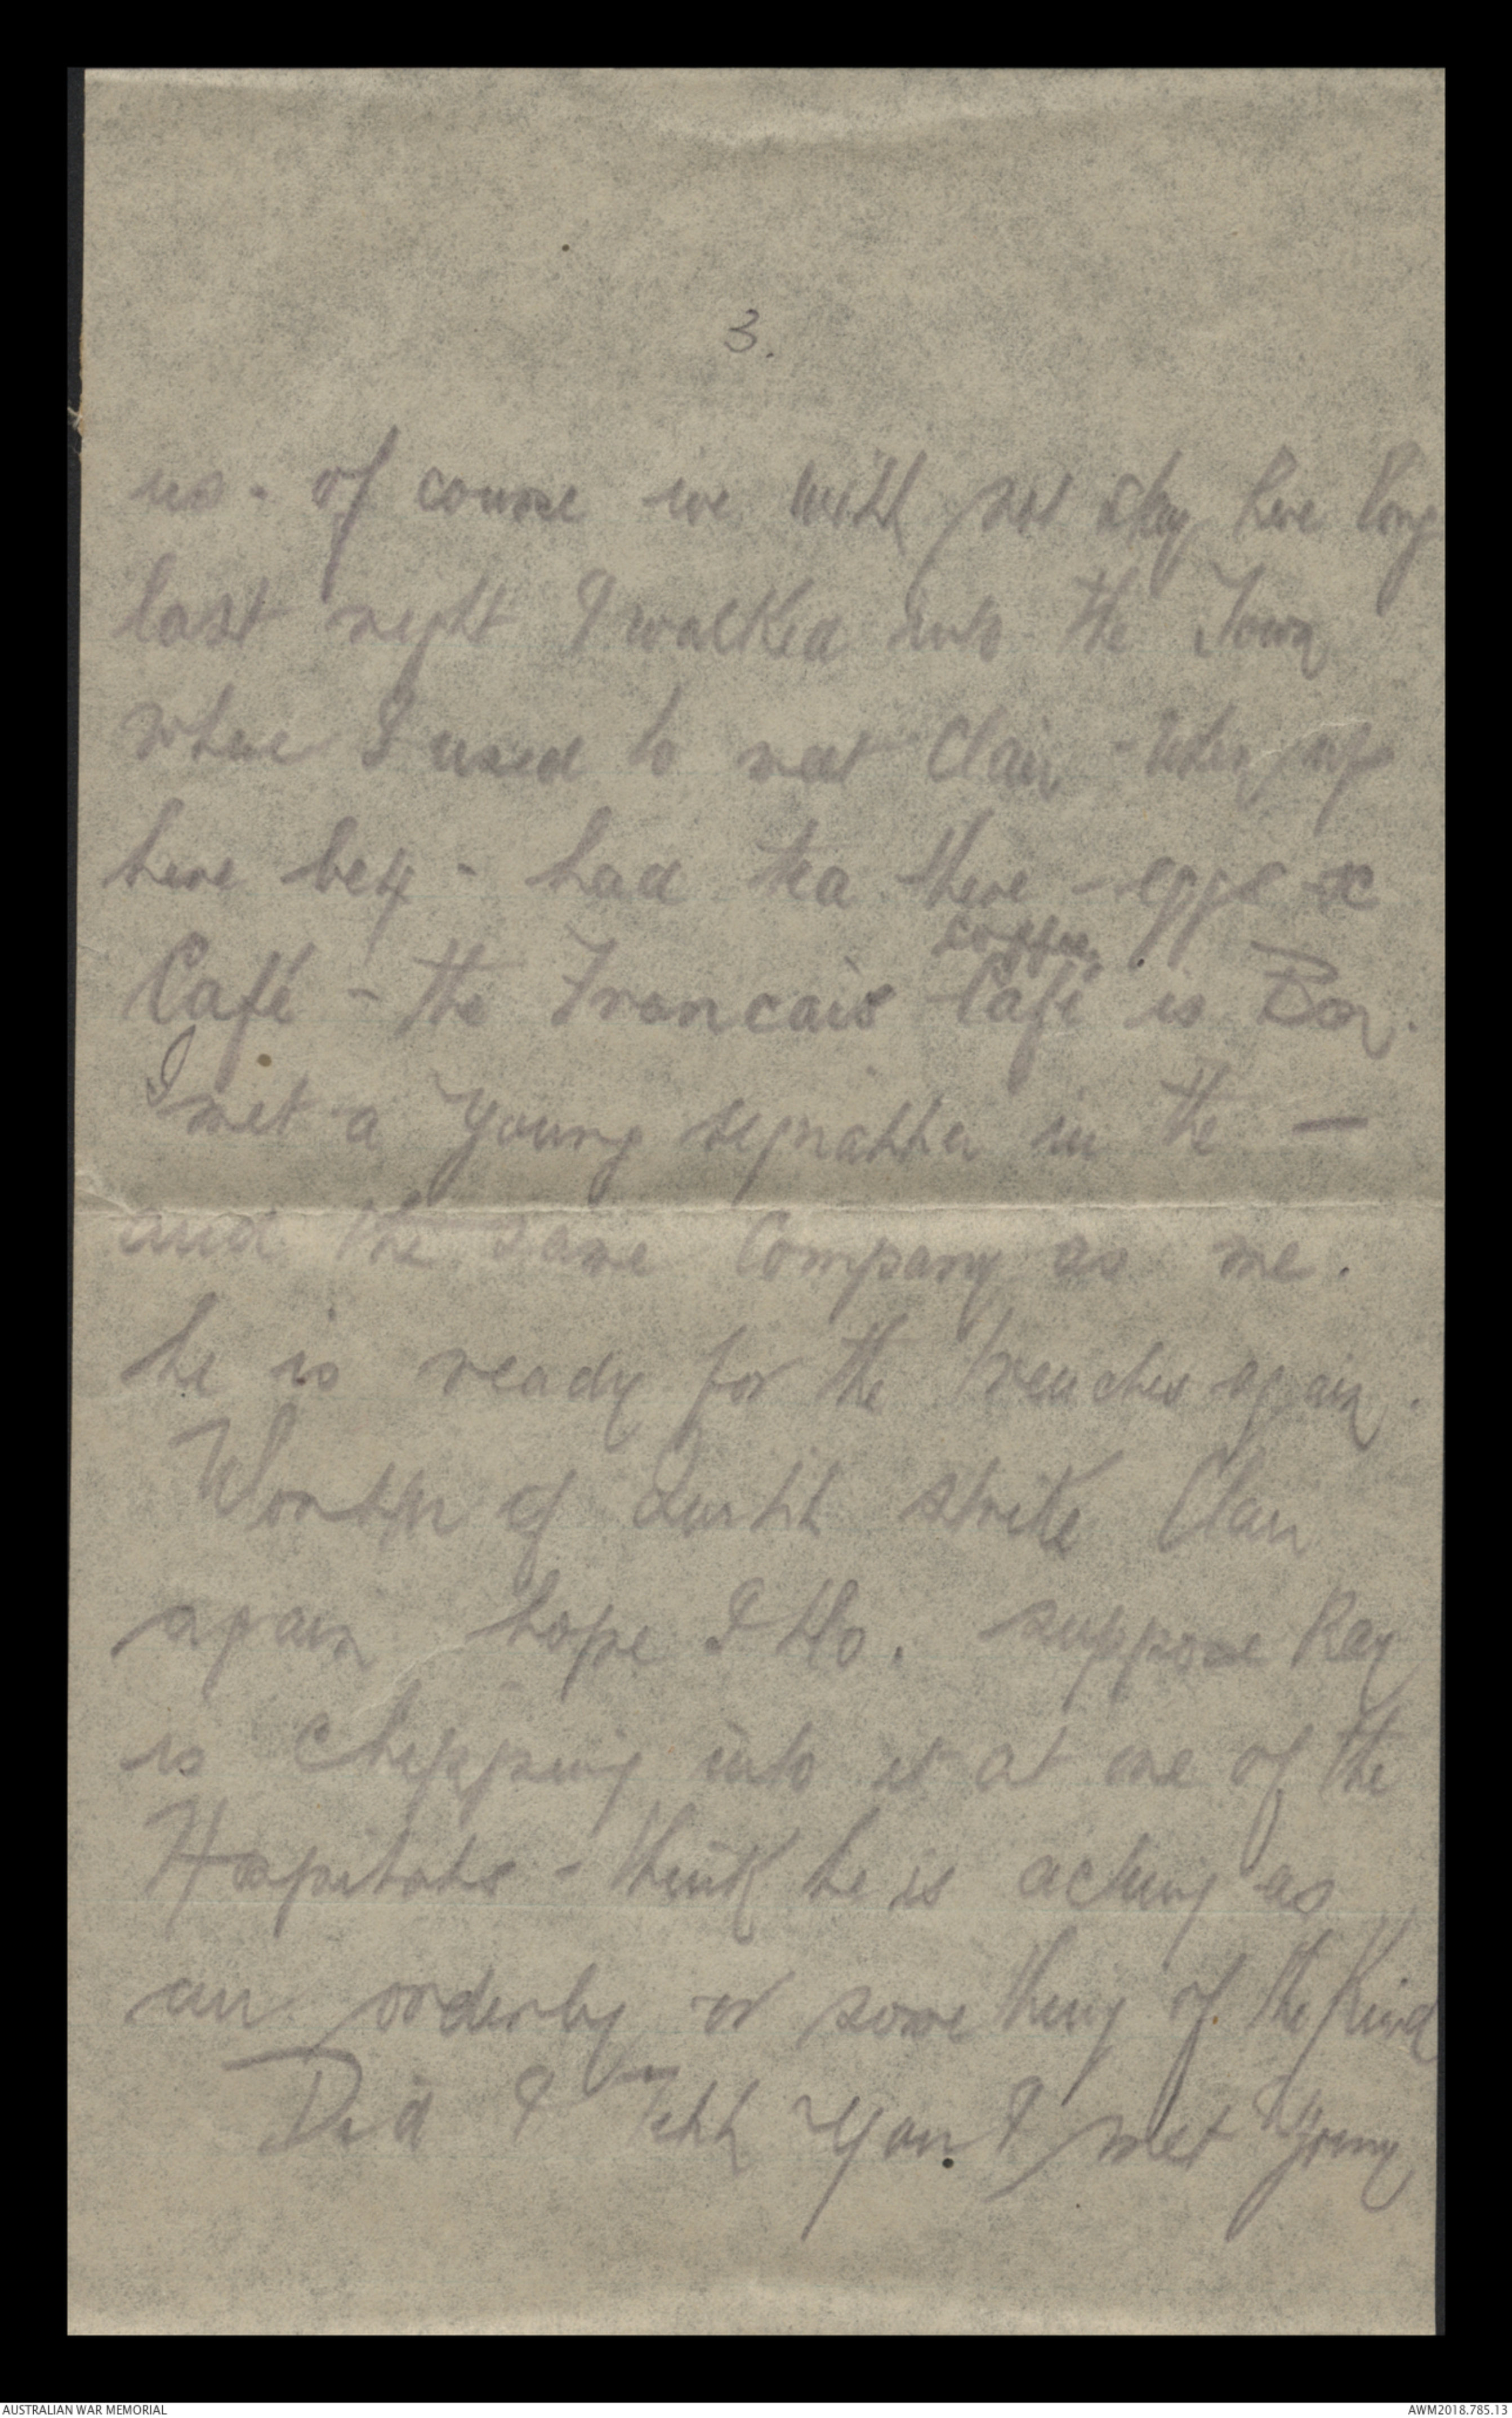 3.
us - of course we will not stay here long
last night I walked into the Town
where I used to meet Clair - when up
here bef - had tea there - eggs &
coffee
Café - the Francais Café is Bon.
I met a young signaller in the —
and the same Company as me.
he is ready for the trenches again.
Wonder if I will strike Clair
again hope I do. suppose Ray
is chipping into it at one of the
Hospitals - think he is acting as
an orderly or some thing of the Kind
Did I Tell You I met young
AUSTRALIAN WAR MEMORIAL
AWM2018.785.13